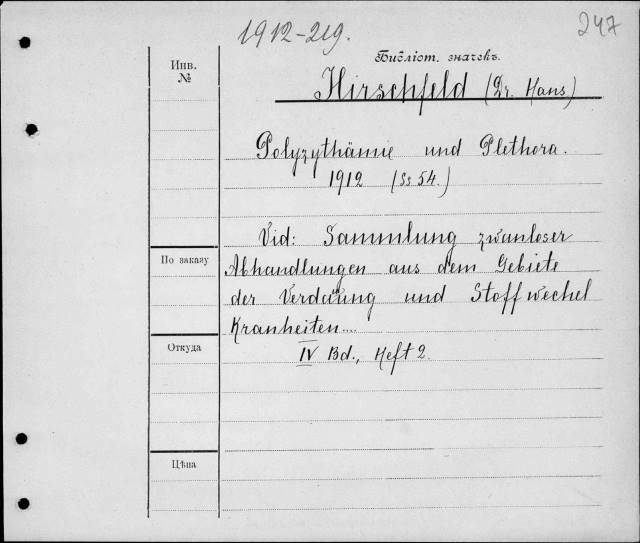 1912-219.
247
Инв.
№
Библіот. значекъ.
Hirschfeld (Dr. Hans)
Polyzythämie und Plethora.
1912 (Ss 54.)
Vid: Sammlung zwanloser
По заказу
Abhandlungen aus dem Gebiete
der Verdauung und Stoffwechel
Kranheiten....
Откуда
IV Bd., Heft 2.
Цѣна